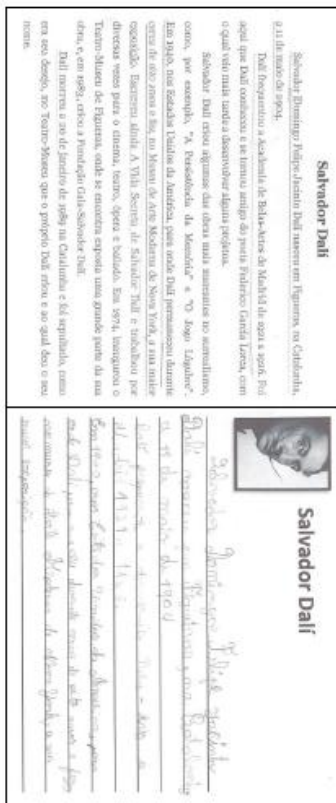 Salvador Dalí
Salvador Domingo Felipe Jacinto Dalí nasceu em Figueras, na Catalunha,
a 11 de maio de 1904.
Dalí frequentou a Academia de Belas-Artes de Madrid de 1921 a 1926. Foi
aqui que Dalí conheceu e se tornou amigo do poeta Federico García Lorca, com
o qual veio mais tarde a desenvolver alguns projetos.
Salvador Dalí criou algumas das obras mais marcantes no surrealismo,
como, por exemplo, "A Persistência da Memória" e "O Jogo Lúgubre".
Em 1940, nos Estados Unidos da América, para onde Dalí permaneceu durante
cerca de oito anos e fez, no Museu de Arte Moderna de Nova York, a sua maior
exposição. Escreveu ainda A Vida Secreta de Salvador Dalí e trabalhou por
diversas vezes para o cinema, teatro, ópera e bailado. Em 1974, inaugurou o
Teatro-Museu de Figueras, onde se encontra exposta uma grande parte da sua
obra, e, em 1983, criou a Fundação Gala-Salvador Dalí.
Dalí morreu a 20 de janeiro de 1989 na Catalunha e foi sepultado, como
era seu desejo, no Teatro-Museu que o próprio Dalí criou e ao qual deu o seu
nome.
Salvador Dalí
Salvador Domingo Felipe Jacinto
Dalí nasceu em Figueras, na Catalunha
a 11 de maio de 1904
Em 1940 nos Estados Unidos da América para
onde Dalí durante cerca de oito anos e fez
no museu de Arte Moderna de Nova York, a sua
maior exposição